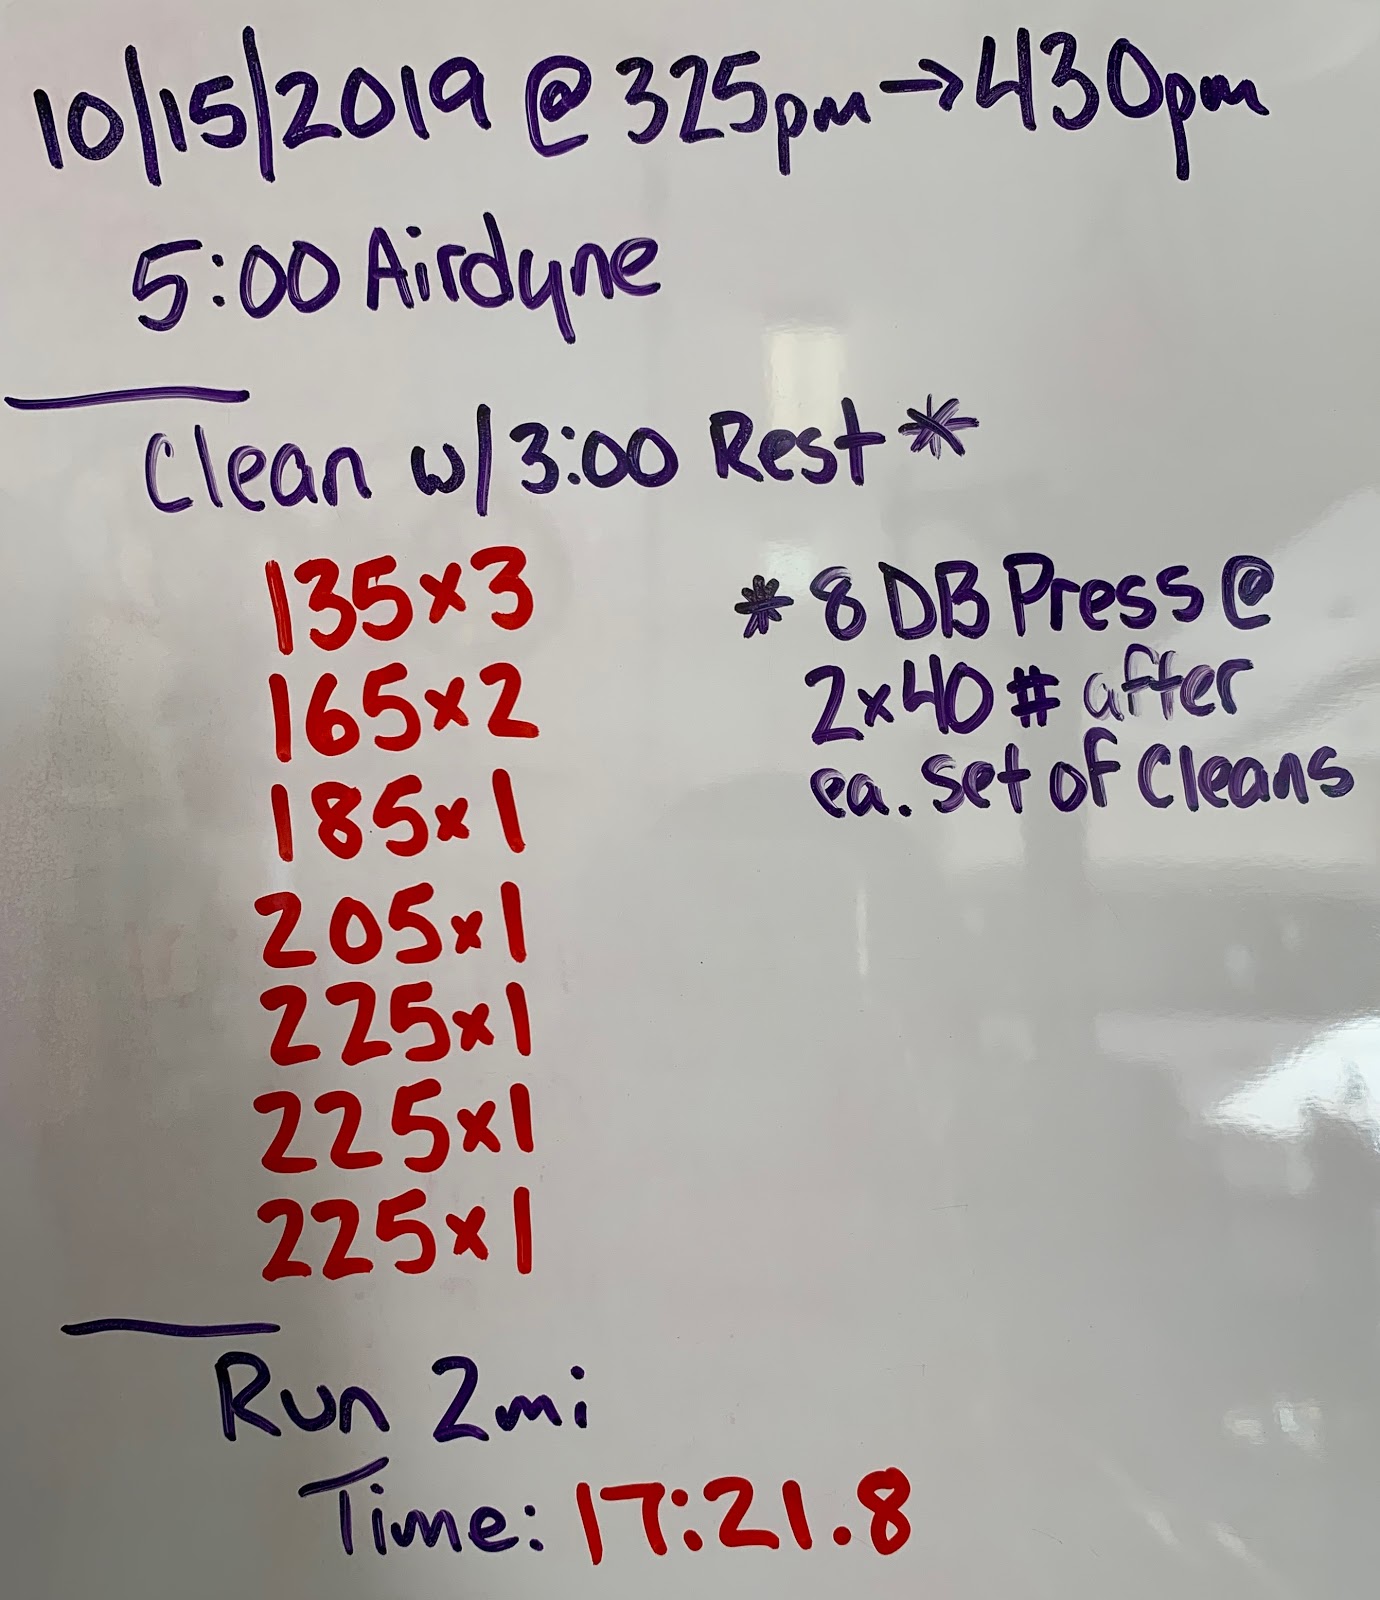 10/15/2019 @ 325pm → 430pm
5:00 Airdyne
Clean w/ 3:00 Rest *
135x3
165x2
185x1
205x1
225x1
225x1
225x1
* 8 DB Press @
2x40 # after
ea. set of Cleans
Run 2mi
Time: 17:21.8